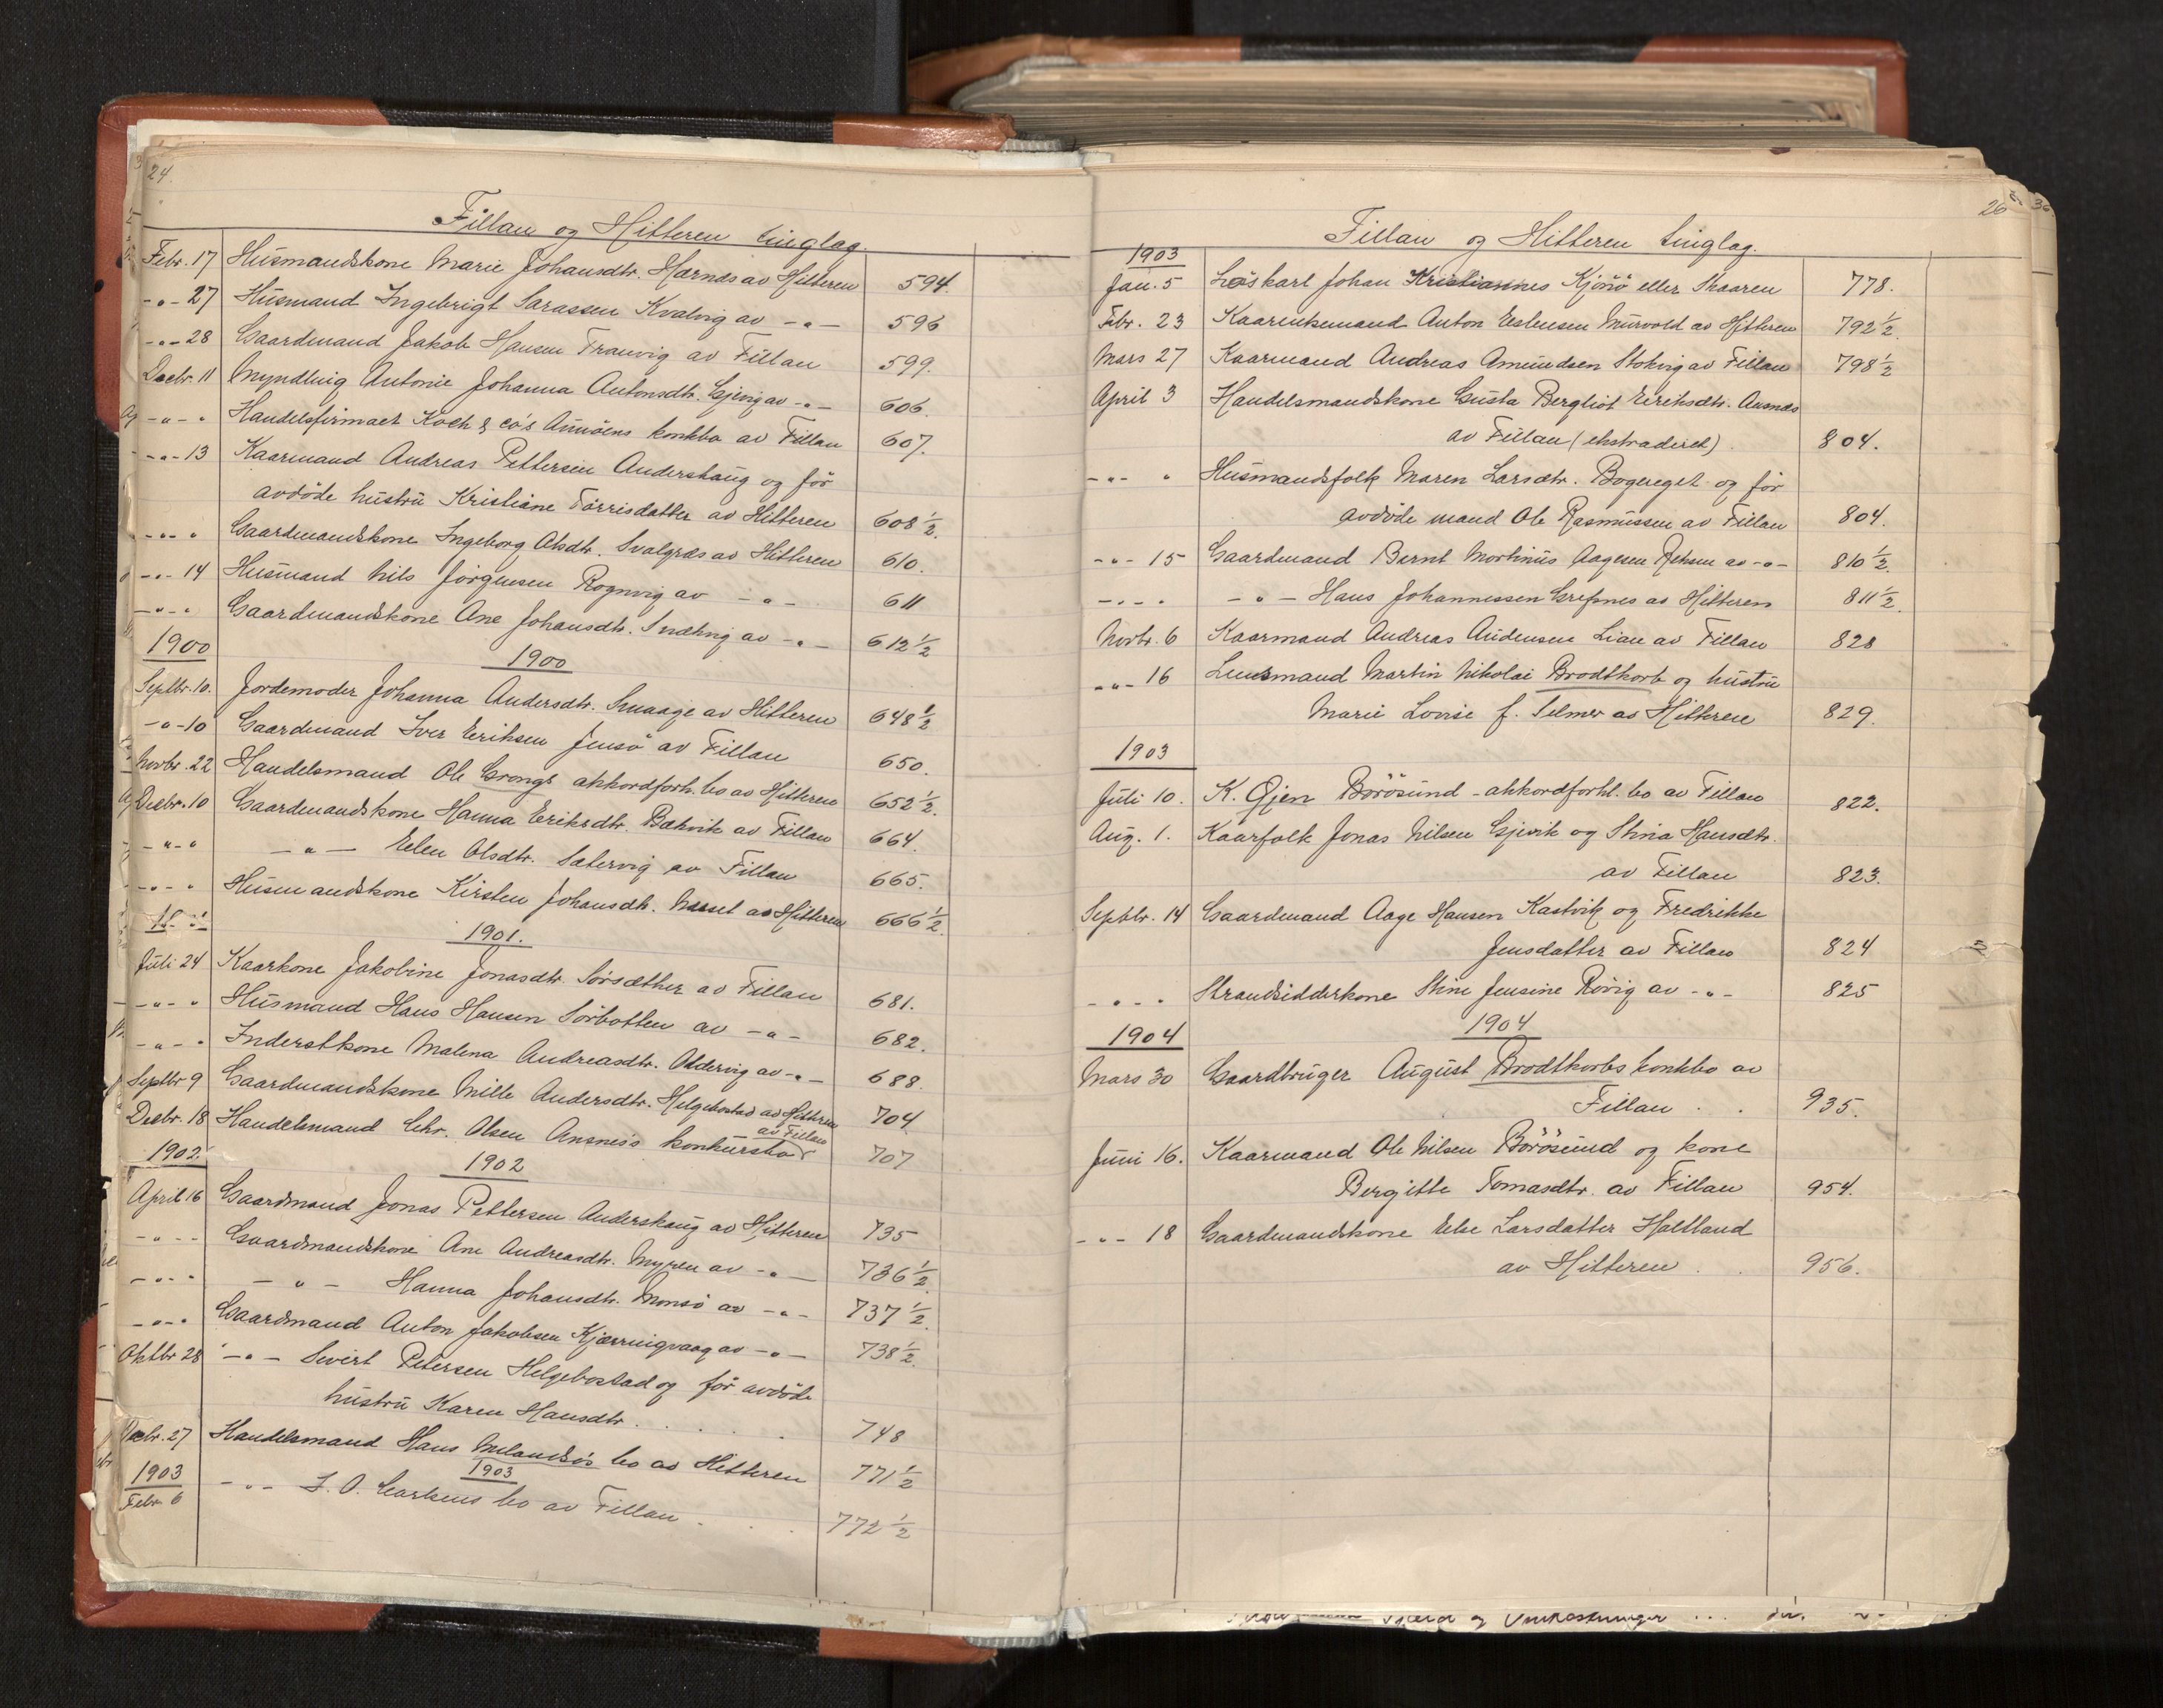 24.
Fillan og Hitteren tinglag.
Febr. 17 Husmandskone Marie Johansdtr. Hernæs av Hitteren 594.
-"- 27 Husmand Ingebrigt Larassen Kvalvig av -"- 596
-"- 28 Gaardmand Jakob Hansen Tranvig av Fillan 599.
Decbr. 11 Myndling Antonie Johanna Antonsdtr. Gjevig av -"- 606.
-"- " Handelsfirmaet Koch & co's konkbo av Fillan 607.
-"- 13 Kaarmand Andreas Pettersen Anderskaug og før
avdøde hustru Kristiane Tørrisdatter av Hitteren 608½.
-"- " Gaardmandskone Ingeborg Olsdtr. Svalgræs av Hitteren 610.
-"- 14 Husmand Nils Jørgensen Rognvig av -"- 611
-"- " Gaardmandskone Ane Johansdtr. av -"- 612½
1900 1900
Septbr. 10. Jordemoder Johanna Andersdtr. Smaage av Hitteren 648½
-"- 10 Gaardmand Iver Eriksen Jensø av Fillan 650.
Novbr. 22 Handelsmand Ole Grongs akkordforh. bo av Hitteren 652½.
Decbr. 10 Gaardmandskone Hanna Eriksdtr. Bækvik av Fillan 664.
-"- " -"- Elen Olsdtr. Sætervig av Fillan 665.
-"- " Husmandskone Kirsten Johansdtr. Næsset av Hitteren 666½.
1901.
Juli 24 Kaarkone Jakobine Jonasdtr. Sørsæther av Fillan 681.
-"- " Husmand Hans Hansen Sørbotten av -"- 682.
-"- " Inderstkone Malena Andreasdtr. Oldervig av -"- 688.
Septbr 9 Gaardmandskone Mille Andersdtr. Helgebostad av Hitteren 704
av Fillan
Decbr. 18 Handelsmand Chr. Olsen Ansnes's konkursbo 707
1902. 1902
April 16 Gaardmand Jonas Pettersen Anderskaug av Hitteren 735
-"- - Gaardmandskone Ane Andreasdtr. Myren av -"- 736½.
-"- " -"- Hanna Johansdtr. Monsø av -"- 737½.
-"- " Gaardmand Anton Jakobsen Kjærringvaag av -"- 738½.
Oktbr 28 -"- Sivert Petersen Helgebostad og før avdøde
hustru Karen Hansdtr. . . . 748
Decbr. 27 Handelsmand Hans Melandsøs bo av Hitteren 771½
1903 1903
Febr. 6 -"- I. O. Carlsens bo av Fillan . . . 772½
26
Fillan og Hitteren tinglag.
1903
Jan. 5 Løskarl Johan Kristiannes Kjønø eller Skaaren 778.
Febr. 23 Kaarinksmand Anton Estensen Murvold av Hitteren 792½.
Mars 27 Kaarmand Andreas Amundsen Stokvig av Fillan 798½
April 3 Handelsmandskone Gusta Bergliot Eriksdtr. Ansnæs
av Fillan (ekstraderet). 804.
-"- " Husmandsfolk Maren Larsdtr. Bogereget og før
avdøde mand Ole Rasmussen av Fillan 804.
-"- 15 Gaardmand Bernt Martinus Aagesen Rehsen av -"- 810½.
-"- " -"- Hans Johannessen Grefsnes av Hitteren 811½.
Novbr. 6 Kaarmand Andreas Audensen Lian av Fillan 828
-"- 16 Lensmand Martin Nikolai Brodtkorb og hustru
Marie Lovise f. Selmer av Hitteren 829.
1903
Juli 10. K. Gjen Børøsund - akkordforhl. bo av Fillan 822.
Aug. 1. Kaarfolk Jonas Nilsen Gjevik og Stina Hansdtr.
av Fillan 823.
Septbr. 14 Gaardmand Aage Hansen Kastvik og Fredrikke
Jensdatter av Fillan 824
-"- " Strandsidderkone Stine Jensine Røvig av -"- 825
1904 1904
Mars 30 Gaardbruger August Brodtkorbs konkbo av
Fillan . . 935.
Juni 16. Kaarmand Ole Nilsen Børøsund og kone
Bergitte Tomasdtr. av Fillan 954.
-"- 18 Gaardmandskone Else Larsdatter Haltland
av Hitteren . . 956.